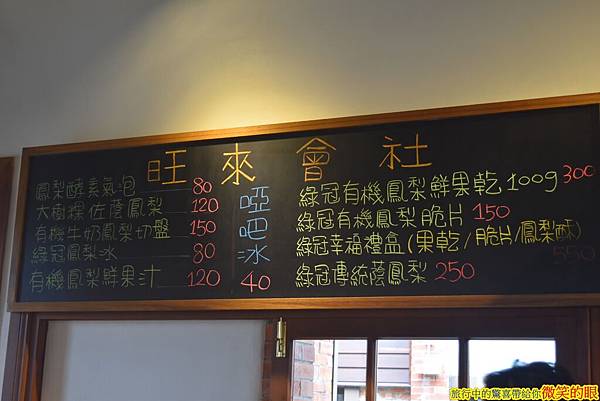 旺來會社
鳳梨酵素氣泡 80
大樹粿佐蔭鳳梨 120
有機牛奶鳳梨切盤 150
綠冠鳳梨冰 80
有機鳳梨鮮果汁 120
啞吧冰 40
綠冠有機鳳梨鮮果乾100g 300
綠冠有機鳳梨脆片 150
綠冠幸福禮盒(果乾/脆片/鳳梨酥) 550
綠冠傳統蔭鳳梨 250
旅行中的驚喜帶給你微笑的眼